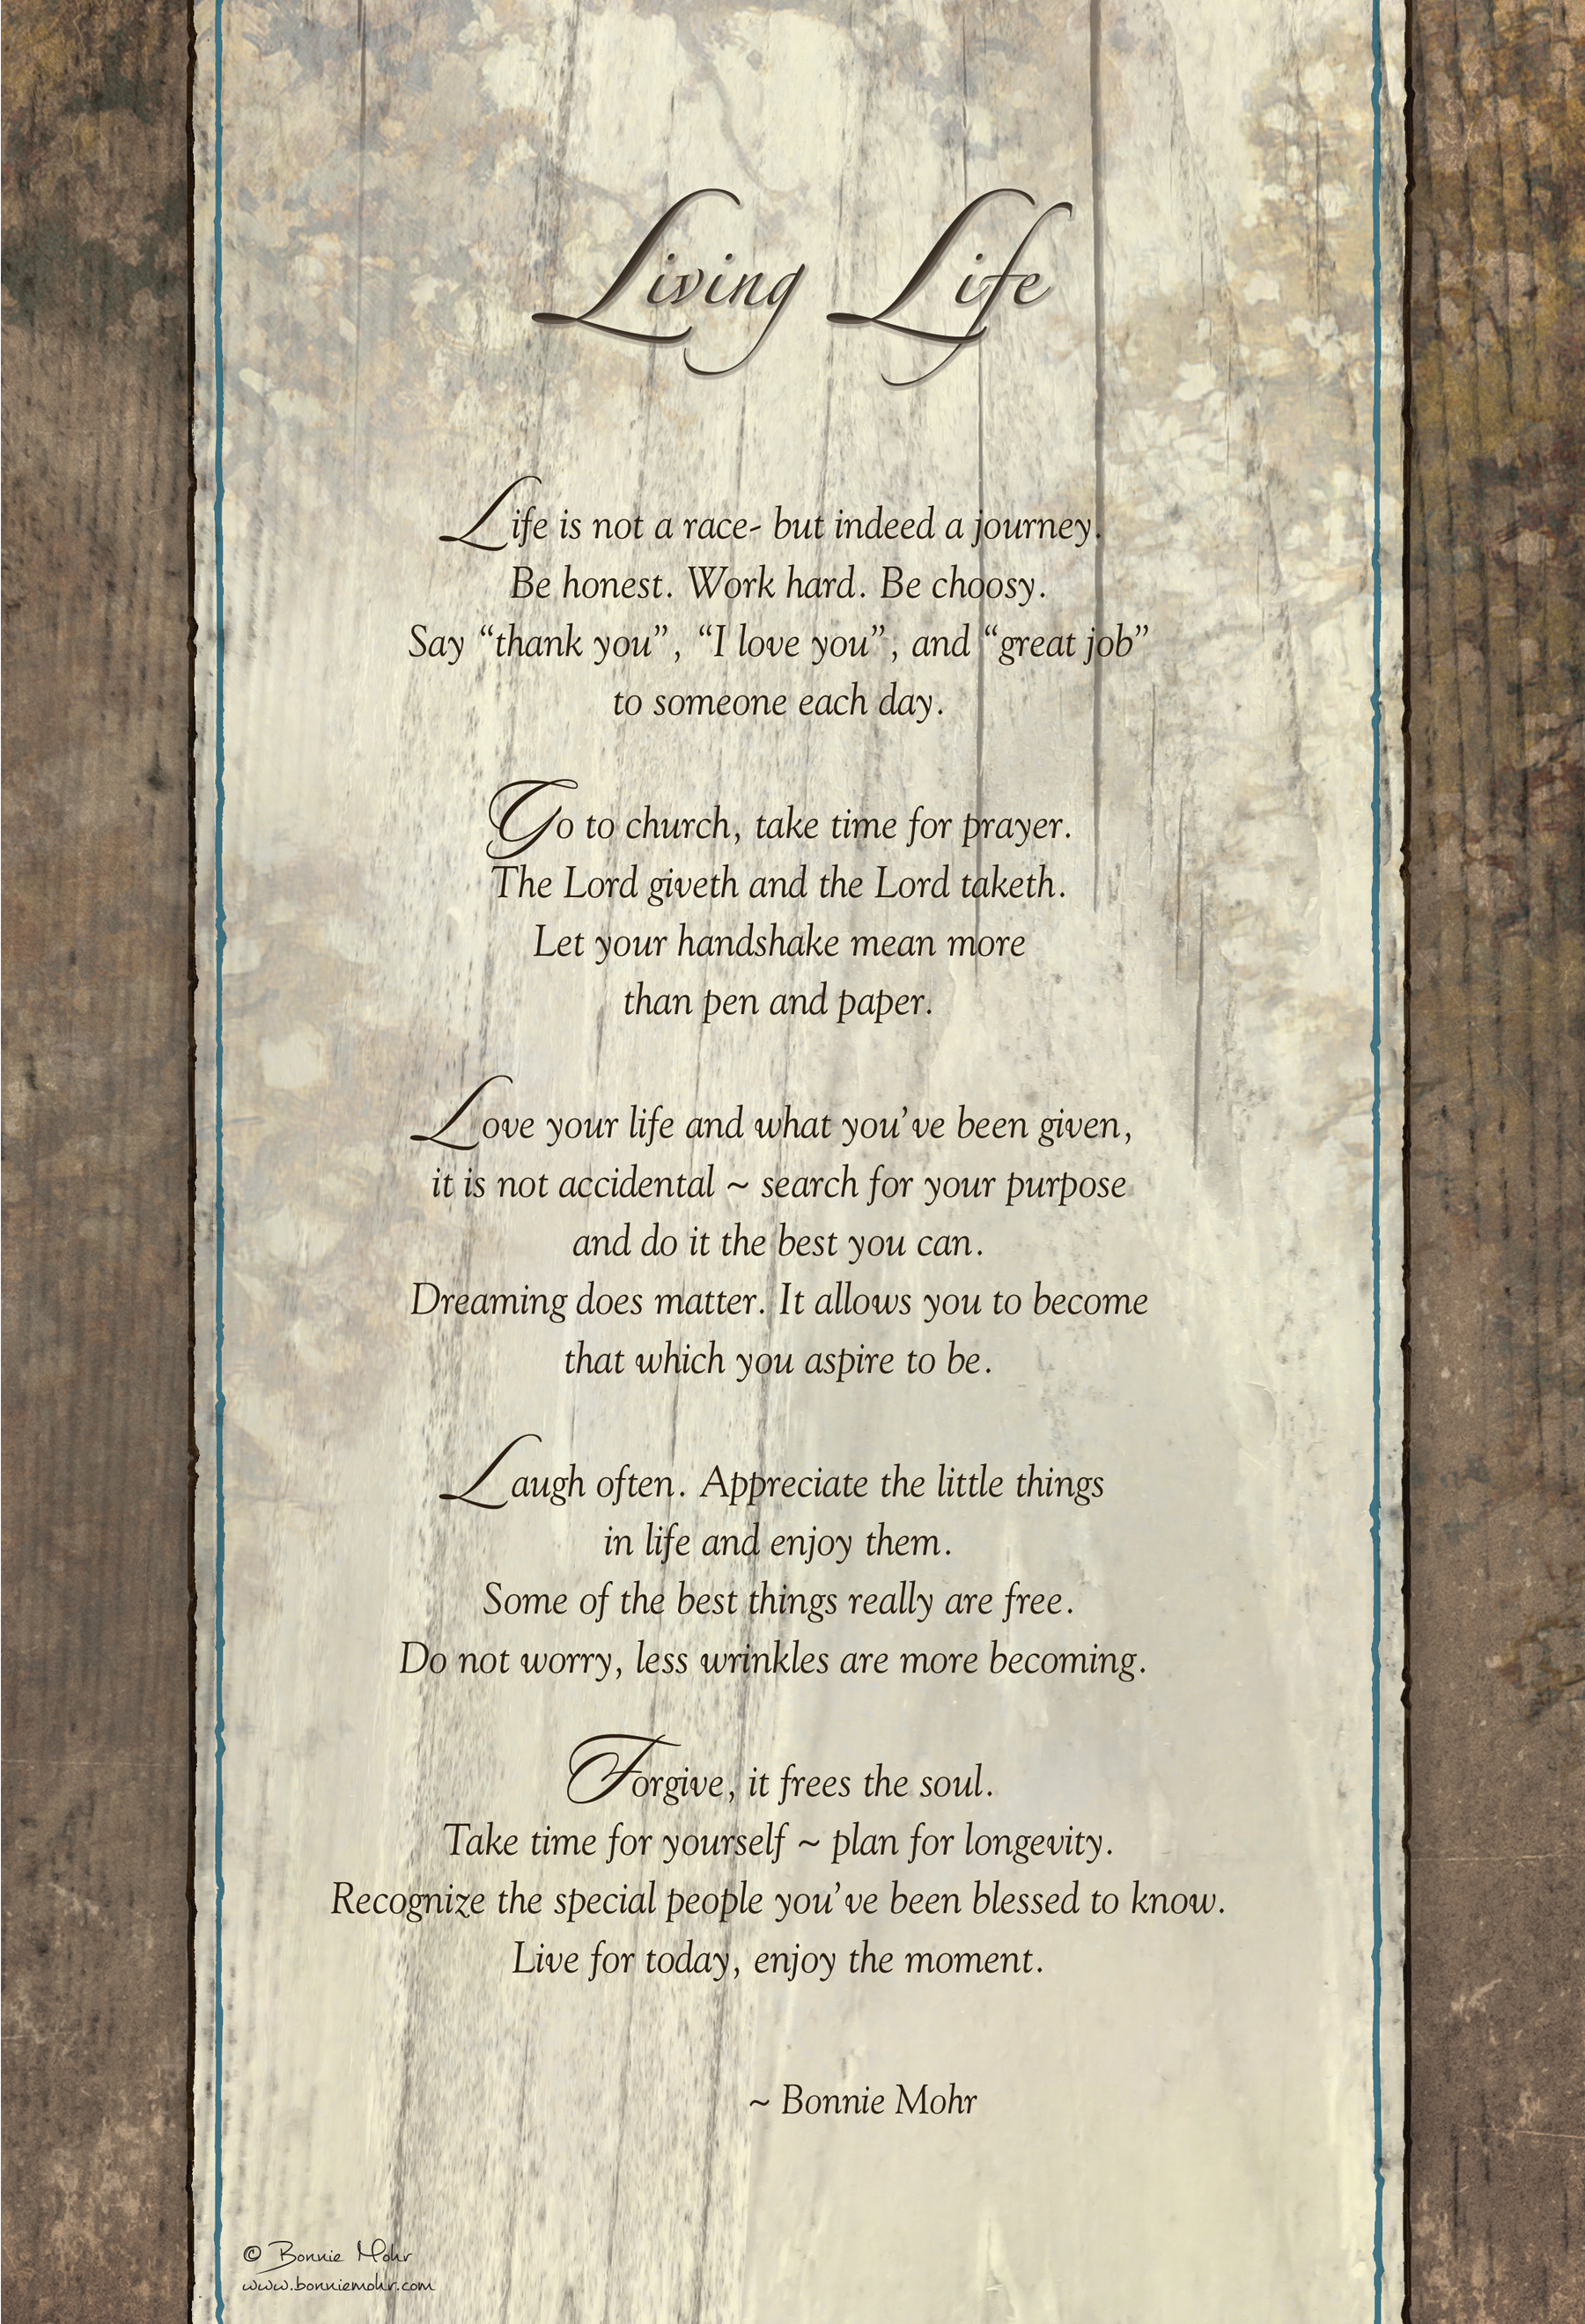 Living Life
Life is not a race- but indeed a journey.
Be honest. Work hard. Be choosy.
Say “thank you”, “I love you”, and “great job”
to someone each day.
Go to church, take time for prayer.
The Lord giveth and the Lord taketh.
Let your handshake mean more
than pen and paper.
Love your life and what you’ve been given,
it is not accidental ~ search for your purpose
and do it the best you can.
Dreaming does matter. It allows you to become
that which you aspire to be.
Laugh often. Appreciate the little things
in life and enjoy them.
Some of the best things really are free.
Do not worry, less wrinkles are more becoming.
Forgive, it frees the soul.
Take time for yourself ~ plan for longevity.
Recognize the special people you’ve been blessed to know.
Live for today, enjoy the moment.
~ Bonnie Mohr
© Bonnie Mohr
www.bonniemohr.com